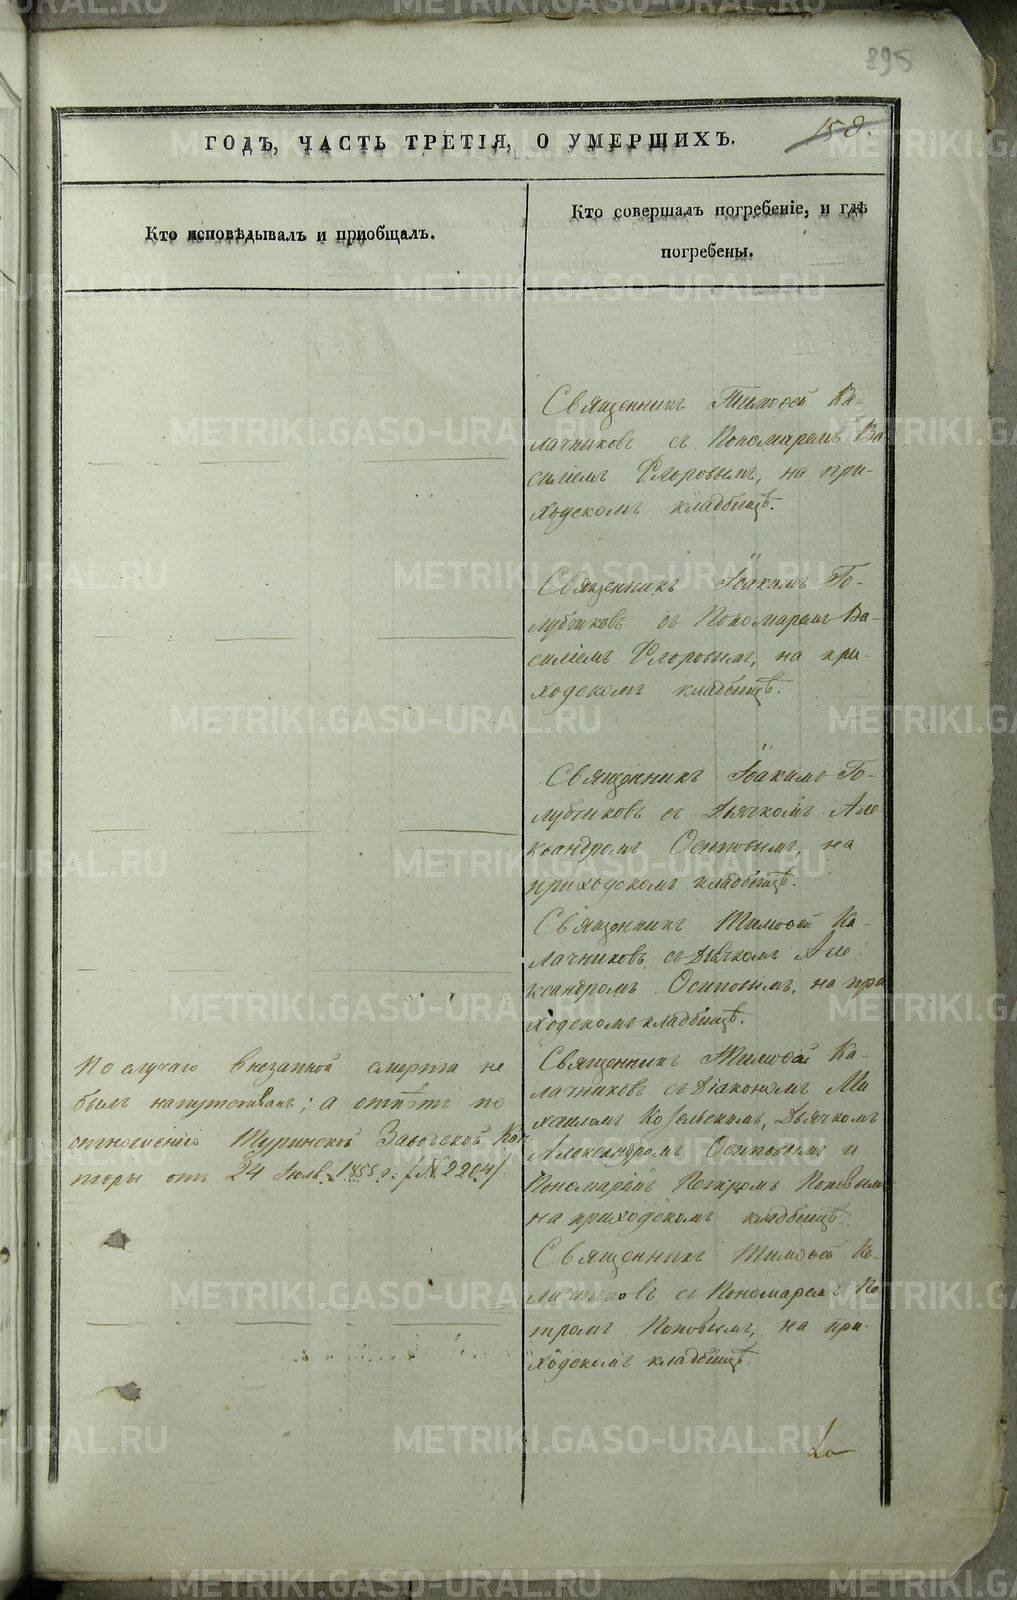 895
158.
ГОДЪ, ЧАСТЬ ТРЕТІЯ, О УМЕРШИХЪ.
Кто исповѣдывалъ и пріобщалъ.
Кто совершалъ погребеніе, и гдѣ
погребены.
Священникъ Тимоѳей Ка-
лачниковъ съ Пономаремъ Ва-
силіемъ Флоровымъ, на при-
ходскомъ кладбищѣ.
Священникъ Іоакимъ Го-
лубчиковъ съ Пономаремъ Ва-
силіемъ Флоровымъ, на при-
ходскомъ кладбищѣ.
Священникъ Іоакимъ Го-
лубчиковъ съ Дьячкомъ Але
ксандромъ Осиповымъ, на
приходскомъ кладбищѣ.
Священникъ Тимоѳей Ка-
лачниковъ съ Дьячкомъ Але
ксандромъ Осиповымъ, на при
ходскомъ кладбищѣ.
По случаю внезапной смерти не
былъ напутствованъ; а отпѣтъ по
отношенію Туринской Заводской Кон
торы отъ 24 Іюля 1855 г. /№ 2204/.
Священникъ Тимоѳей Ка-
лачниковъ съ Діакономъ Ми
хаиломъ Козельскимъ, Дьячкомъ
Александромъ Осиповымъ и
Пономаремъ Петромъ Поповымъ
на приходскомъ кладбищѣ
Священникъ Тимоѳей Ка-
лачниковъ съ Пономаремъ Пе
тромъ Поповымъ, на при-
ходскомъ кладбищѣ.
METRIKI.GASO-URAL.RU